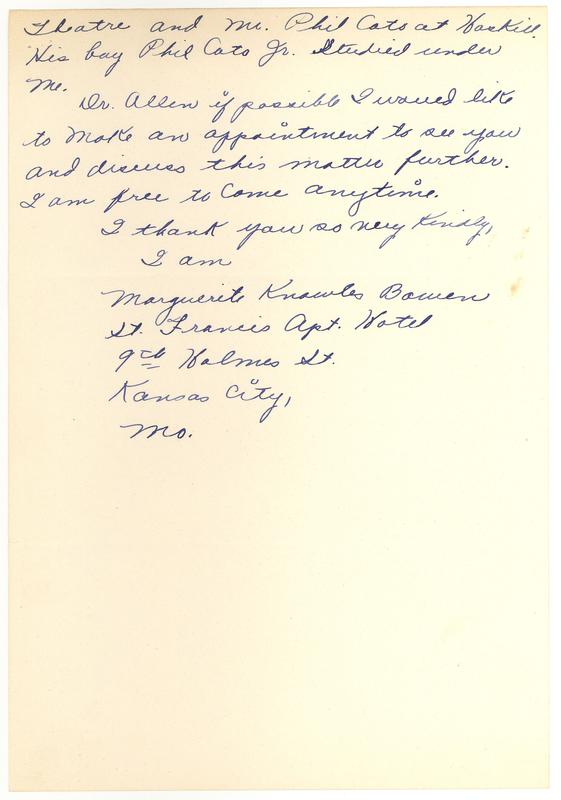 Theatre and Mr. Phil Cato at Haskill.
His boy Phil Cato Jr. Studied under
Me.
Dr. Allen if possible I would like
to Make an appointment to see you
and discuss this matter further.
I am free to Come anytime.
I thank you so very Kindly,
I am
Marguerite Knowles Bowen
St. Francis Apt. Hotel
9th Holmes St.
Kansas City,
Mo.